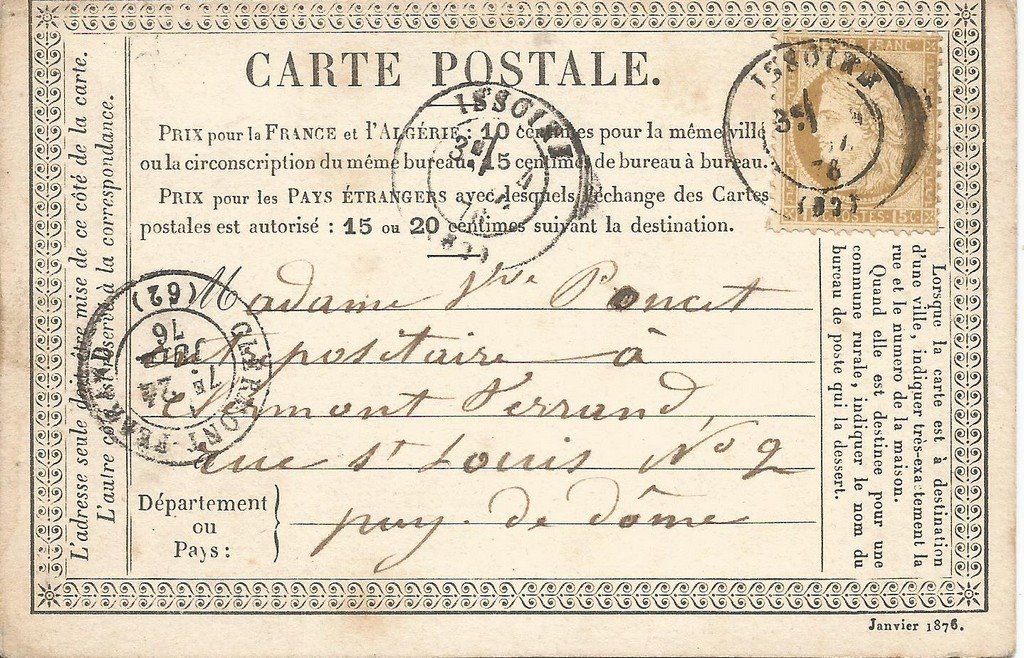 CARTE POSTALE.
PRIX pour la FRANCE et l'ALGÉRIE : 10 centimes pour la même ville
ou la circonscription du même bureau. 15 centimes de bureau à bureau.
PRIX pour les PAYS ÉTRANGERS avec lesquels l'échange des Cartes
postales est autorisé : 15 ou 20 centimes suivant la destination.
L'adresse seule doit être mise de ce côté de la carte.
L'autre côté est réservé à la correspondance.
FRANC
POSTES 15 C.
ISSOIRE
3E
(62)
ISSOIRE
3E
CLERMONT-FERRAND
7E
24
JUIL
76
(62)
Madame Vve Poncet
à
Clermont Ferrand,
rue St Louis No 2
Département
ou
Pays :
puy-de dôme
Lorsque la carte est à destination
d'une ville, indiquer très-exactement la
rue et le numero de la maison.
Quand elle est destinee pour une
commune rurale, indiquer le nom du
bureau de poste qui la dessert.
Janvier 1876.